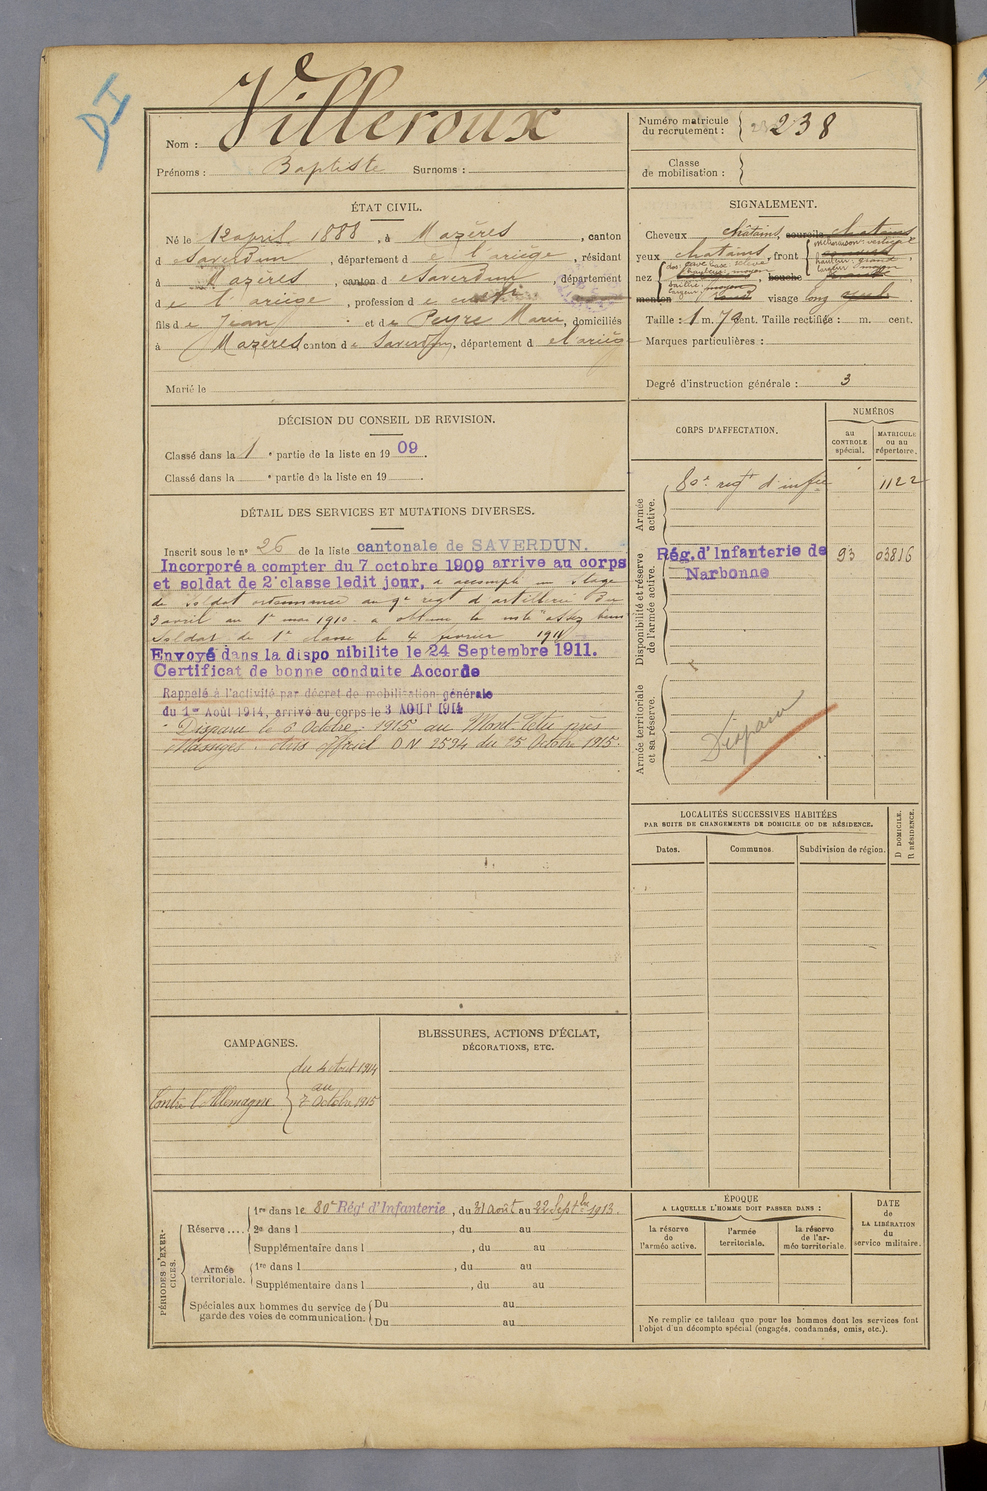 DI
Villeroux
Nom :
Prénoms : Baptiste Surnoms :
Numéro matricule
du recrutement : 238
Classe
de mobilisation :
ÉTAT CIVIL.
Né le 12 april 1888, à Mazères, canton
d e Saverdun, département d e l'ariège, résidant
à Mazères, canton d e Saverdun, département
d e l'ariège, profession d e
fils d e Jean et d e Peyre Marie, domiciliés
à Mazères canton d e Saverdun, département d e l'ariège
Marié le
SIGNALEMENT.
Cheveux châtains, sourcils chatains
yeux chatains, front inclinaison: verticale
hauteur: grande
largeur: moyen
nez dos: cave base relevé
hauteur: moyen
saillie: moyen
largeur: bouche
menton visage long
Taille : 1 m. 7 cent. Taille rectifiée : m. cent.
Marques particulières :
Degré d'instruction générale : 3
DÉCISION DU CONSEIL DE REVISION.
Classé dans la 1e partie de la liste en 1909.
Classé dans la e partie de la liste en 19 .
DÉTAIL DES SERVICES ET MUTATIONS DIVERSES.
Inscrit sous le n° 26 de la liste cantonale de SAVERDUN.
Incorporé a compter du 7 octobre 1909 arrive au corps
et soldat de 2e classe ledit jour, a accompli un stage
de soldat ordonnance au 9e regt d'artillerie du
3 avril au 1er mai 1910 a obtenu la note assez bien
Soldat de 1e classe le 4 fevrier 1911
Envoyé dans la disponibilite le 24 Septembre 1911.
Certificat de bonne conduite Accorde
Rappelé à l'activité par décret de mobilisation générale
du 1er Août 1914, arrivé au corps le 3 AOUT 1914
Disparu le 6 Octobre 1915 au Mont Tetu près
Massiges. Avis officiel DN 2594 du 25 Octobre 1915.
CORPS D'AFFECTATION.
NUMÉROS
au
CONTROLE
spécial.
MATRICULE
ou au
répertoire.
Armée
active.
80e regt d'infie 1122
Disponibilité et réserve
de l'armée active.
Rég. d'Infanterie de
Narbonne 93 03816
Armée territoriale
et sa réserve.
Disparu
LOCALITÉS SUCCESSIVES HABITÉES
PAR SUITE DE CHANGEMENTS DE DOMICILE OU DE RÉSIDENCE.
Dates. Communes. Subdivision de région.
D DOMICILE.
R RÉSIDENCE.
CAMPAGNES.
Contre l'Allemagne
du 4 Août 1914
au
7 Octobre 1915
BLESSURES, ACTIONS D'ÉCLAT,
DÉCORATIONS, ETC.
PÉRIODES D'EXER-
CICES.
Réserve....
1re dans le 80e Régt d'Infanterie, du 31 Août au 22 Septbre 1913.
2e dans l , du au
Supplémentaire dans l , du au
Armée
territoriale.
1re dans l , du au
Supplémentaire dans l , du au
Spéciales aux hommes du service de
garde des voies de communication.
Du au
Du au
ÉPOQUE
A LAQUELLE L'HOMME DOIT PASSER DANS :
la réserve
de
l'armée active.
l'armée
territoriale.
la réserve
de l'ar-
mée territoriale.
DATE
de
LA LIBÉRATION
du
service militaire.
Ne remplir ce tableau que pour les hommes dont les services font
l'objet d'un décompte spécial (engagés, condamnés, omis, etc.).